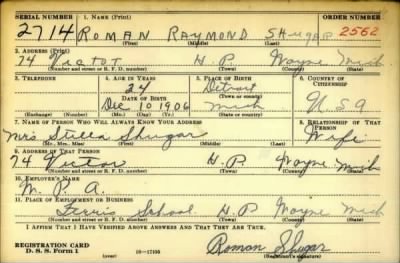 SERIAL NUMBER 1. NAME (Print) ORDER NUMBER
2714 ROMAN RAYMOND SHUGAR 2562
(First) (Middle) (Last)
2. ADDRESS (Print)
74 Victor H.P Wayne Mich
(Number and street or R. F. D. number) (Town) (County) (State)
3. TELEPHONE 4. AGE IN YEARS 5. PLACE OF BIRTH 6. COUNTRY OF CITIZENSHIP
Detroit
DATE OF BIRTH
Dec 10 1906 Mich USA
(Exchange) (Number) (Mo.) (Day) (Yr.) (State or country)
7. NAME OF PERSON WHO WILL ALWAYS KNOW YOUR ADDRESS 8. RELATIONSHIP OF THAT PERSON
Mrs Stella Shugar Wife
(Mr., Mrs., Miss) (First) (Middle) (Last)
9. ADDRESS OF THAT PERSON
74 Victor H.P Wayne Mich
(Number and street or R. F. D. number) (Town) (County) (State)
10. EMPLOYER'S NAME
W. P. A.
11. PLACE OF EMPLOYMENT OR BUSINESS
Ferris School H P Wayne Mich
(Number and street or R. F. D. number) (Town) (County) (State)
I AFFIRM THAT I HAVE VERIFIED ABOVE ANSWERS AND THAT THEY ARE TRUE.
REGISTRATION CARD
D. S. S. Form 1 (over) 16—17105 Roman Shugar
(Registrant's signature)